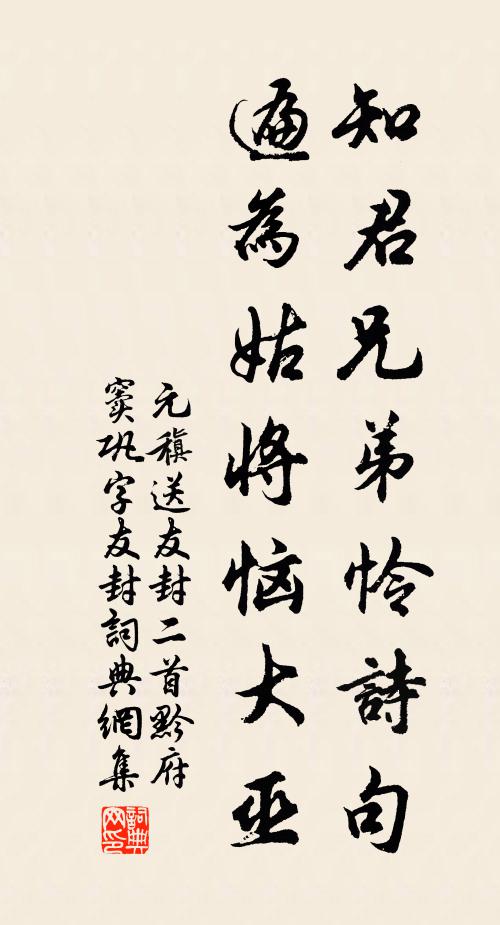 知君兄弟怜詩句
遍為姑將恼大巫
元稹送友封二首黔府
窦巩字友封詞典網集
詞典网印